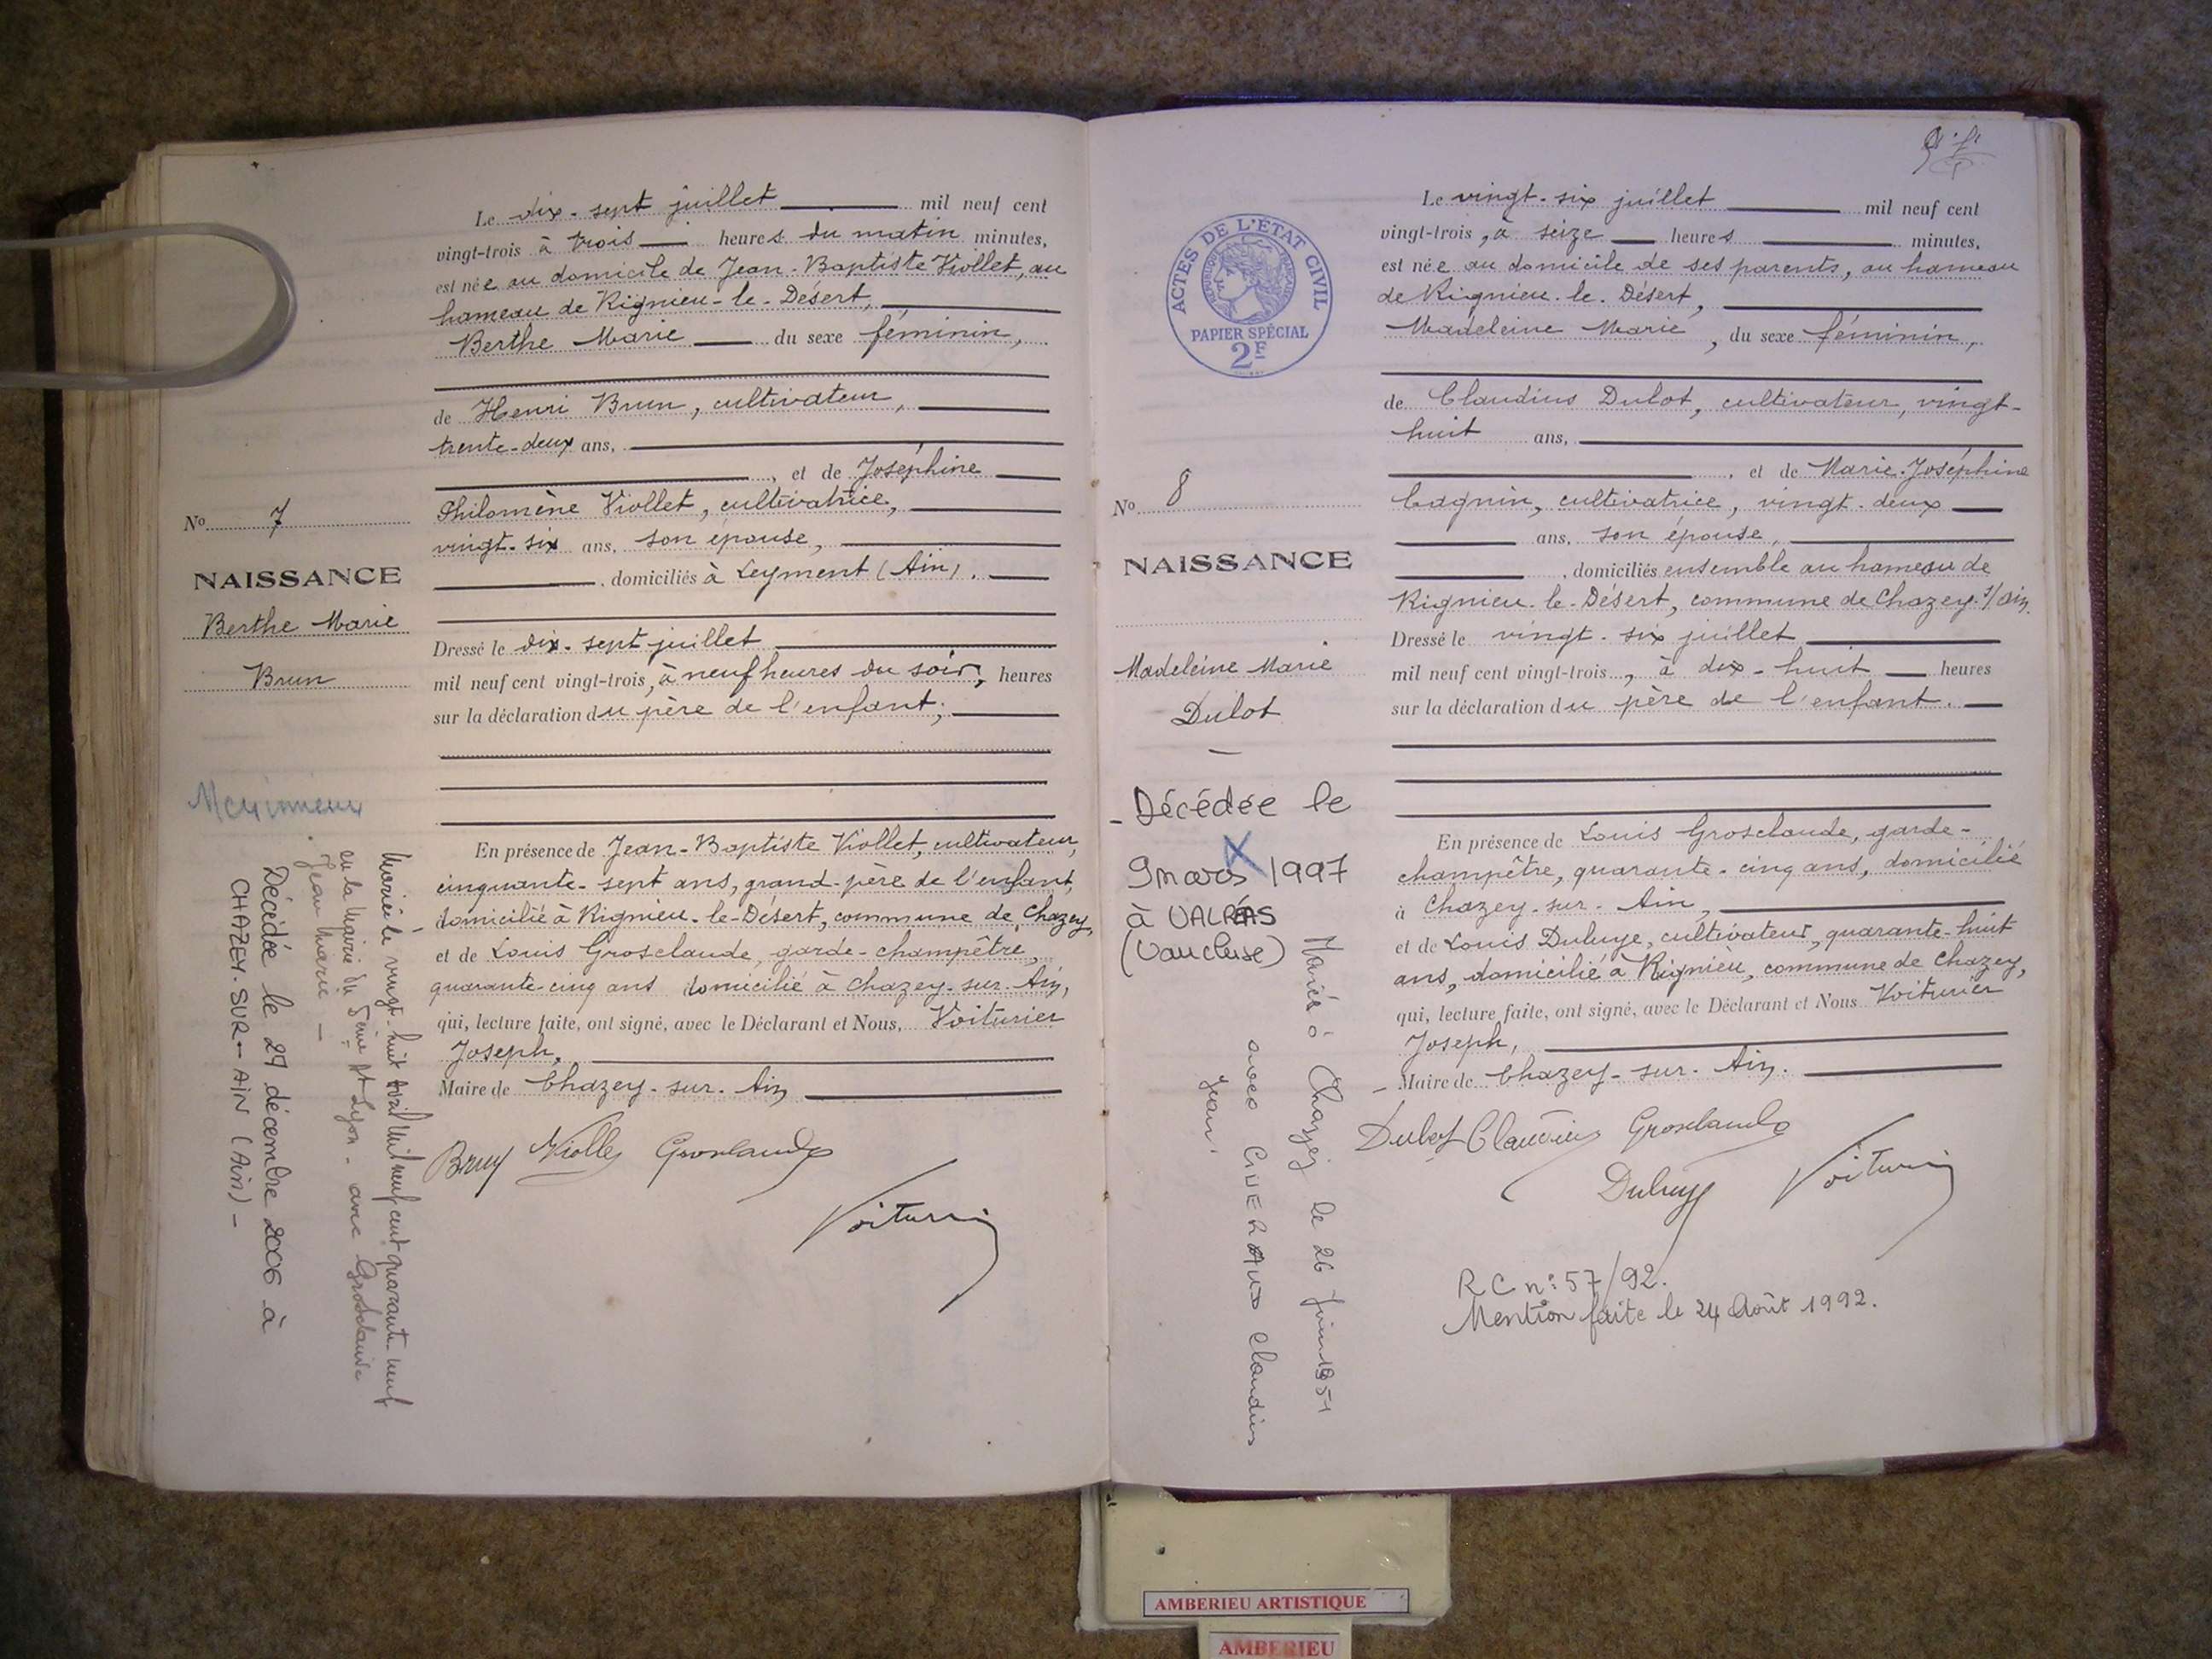 Le dix-sept juillet mil neuf cent
vingt-trois à trois heures du matin minutes,
est née au domicile de Jean-Baptiste Viollet, au
hameau de Rignieu-le-Désert,
Berthe Marie du sexe féminin,
de Henri Brun, cultivateur,
trente-deux ans,
, et de Joséphine
Philomène Viollet, cultivatrice,
vingt-six ans, son épouse,
, domiciliés à Leyment (Ain).
Dressé le dix-sept juillet
mil neuf cent vingt-trois, à neuf heures du soir, heures
sur la déclaration du père de l'enfant;
En présence de Jean-Baptiste Viollet, cultivateur,
cinquante-sept ans, grand-père de l'enfant,
domicilié à Rignieu-le-Désert, commune de Chazey,
et de Louis Grosclaude, garde-champêtre,
quarante-cinq ans domicilié à Chazey-sur-Ain,
qui, lecture faite, ont signé, avec le Déclarant et Nous, Voiturier
Joseph,
Maire de Chazey-sur-Ain
Brun Viollet Grosclaude
Voiturier
No 7
NAISSANCE
Berthe Marie
Brun
Mariée le vingt-huit avril mil neuf cent quarante-neuf
en la Mairie du 5ème Art Lyon - avec Grosclaude
Jean Marie -
Décédée le 29 décembre 2006 à
CHAZEY-SUR-AIN (Ain) -
ACTES DE L'ÉTAT CIVIL
RÉPUBLIQUE FRANÇAISE
PAPIER SPÉCIAL
2F
No 8
NAISSANCE
Madeleine Marie
Dulot
- Décédée le
9 mars 1997
à VALRÉAS
(Vaucluse)
Mariée à Chazey le 26 juin 1951
avec Claudius
Jean.
Le vingt-six juillet mil neuf cent
vingt-trois, à seize heures minutes,
est née au domicile de ses parents, au hameau
de Rignieu-le-Désert,
Madeleine Marie, du sexe féminin,
de Claudius Dulot, cultivateur, vingt-
huit ans,
, et de Marie-Joséphine
Cagnin, cultivatrice, vingt-deux
ans, son épouse,
, domiciliés ensemble au hameau de
Rignieu-le-Désert, commune de Chazey-s/Ain.
Dressé le vingt-six juillet
mil neuf cent vingt-trois, à dix-huit heures
sur la déclaration du père de l'enfant.
En présence de Louis Grosclaude, garde-
champêtre, quarante-cinq ans, domicilié
à Chazey-sur-Ain,
et de Louis Duluye, cultivateur, quarante-huit
ans, domicilié à Rignieu, commune de Chazey,
qui, lecture faite, ont signé, avec le Déclarant et Nous Voiturier
Joseph,
Maire de Chazey-sur-Ain.
Dulot Claudius Grosclaude
Duluye Voiturier
RC n°57/92.
Mention faite le 24 Août 1992.
AMBERIEU ARTISTIQUE
AMBERIEU